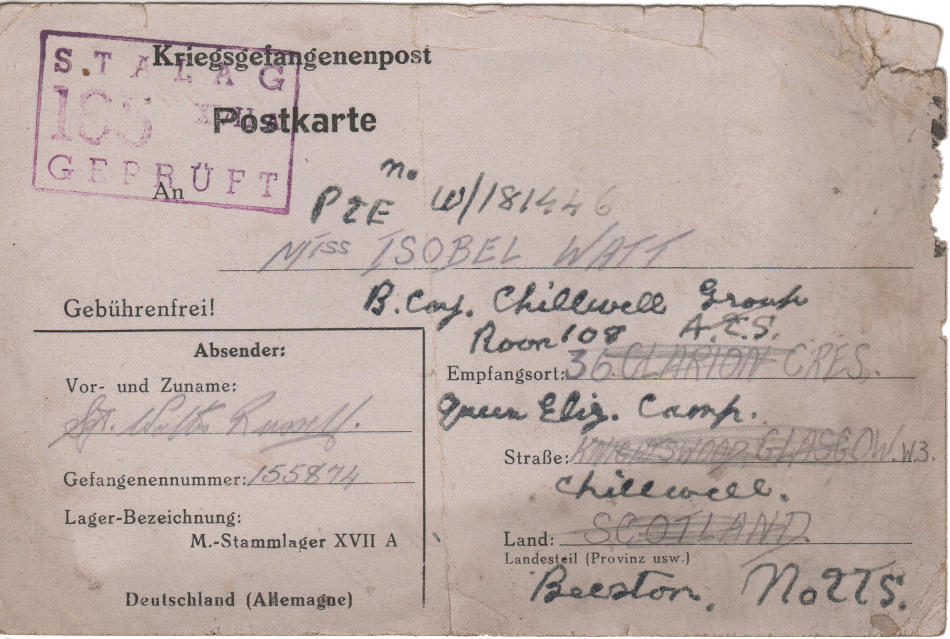 Kriegsgefangenenpost
STALAG
XVIIA
Postkarte
GEPRÜFT
An
No
PTE W/181446
MISS ISOBEL WATT
B. Coy. Chillwell Group
Gebührenfrei!
Room 108 A.T.S.
Absender:
Empfangsort: 36 CLARION CRES.
Vor- und Zuname:
Queen Eliz. Camp.
Sgt. Russell.
Straße: KNIGHTSWOOD, GLASGOW. W.3.
Gefangenennummer: 155874
Chillwell.
Lager-Bezeichnung:
M.-Stammlager XVII A
Land: SCOTLAND.
Landesteil (Provinz usw.)
Deutschland (Allemagne)
Beeston, NOTTS.